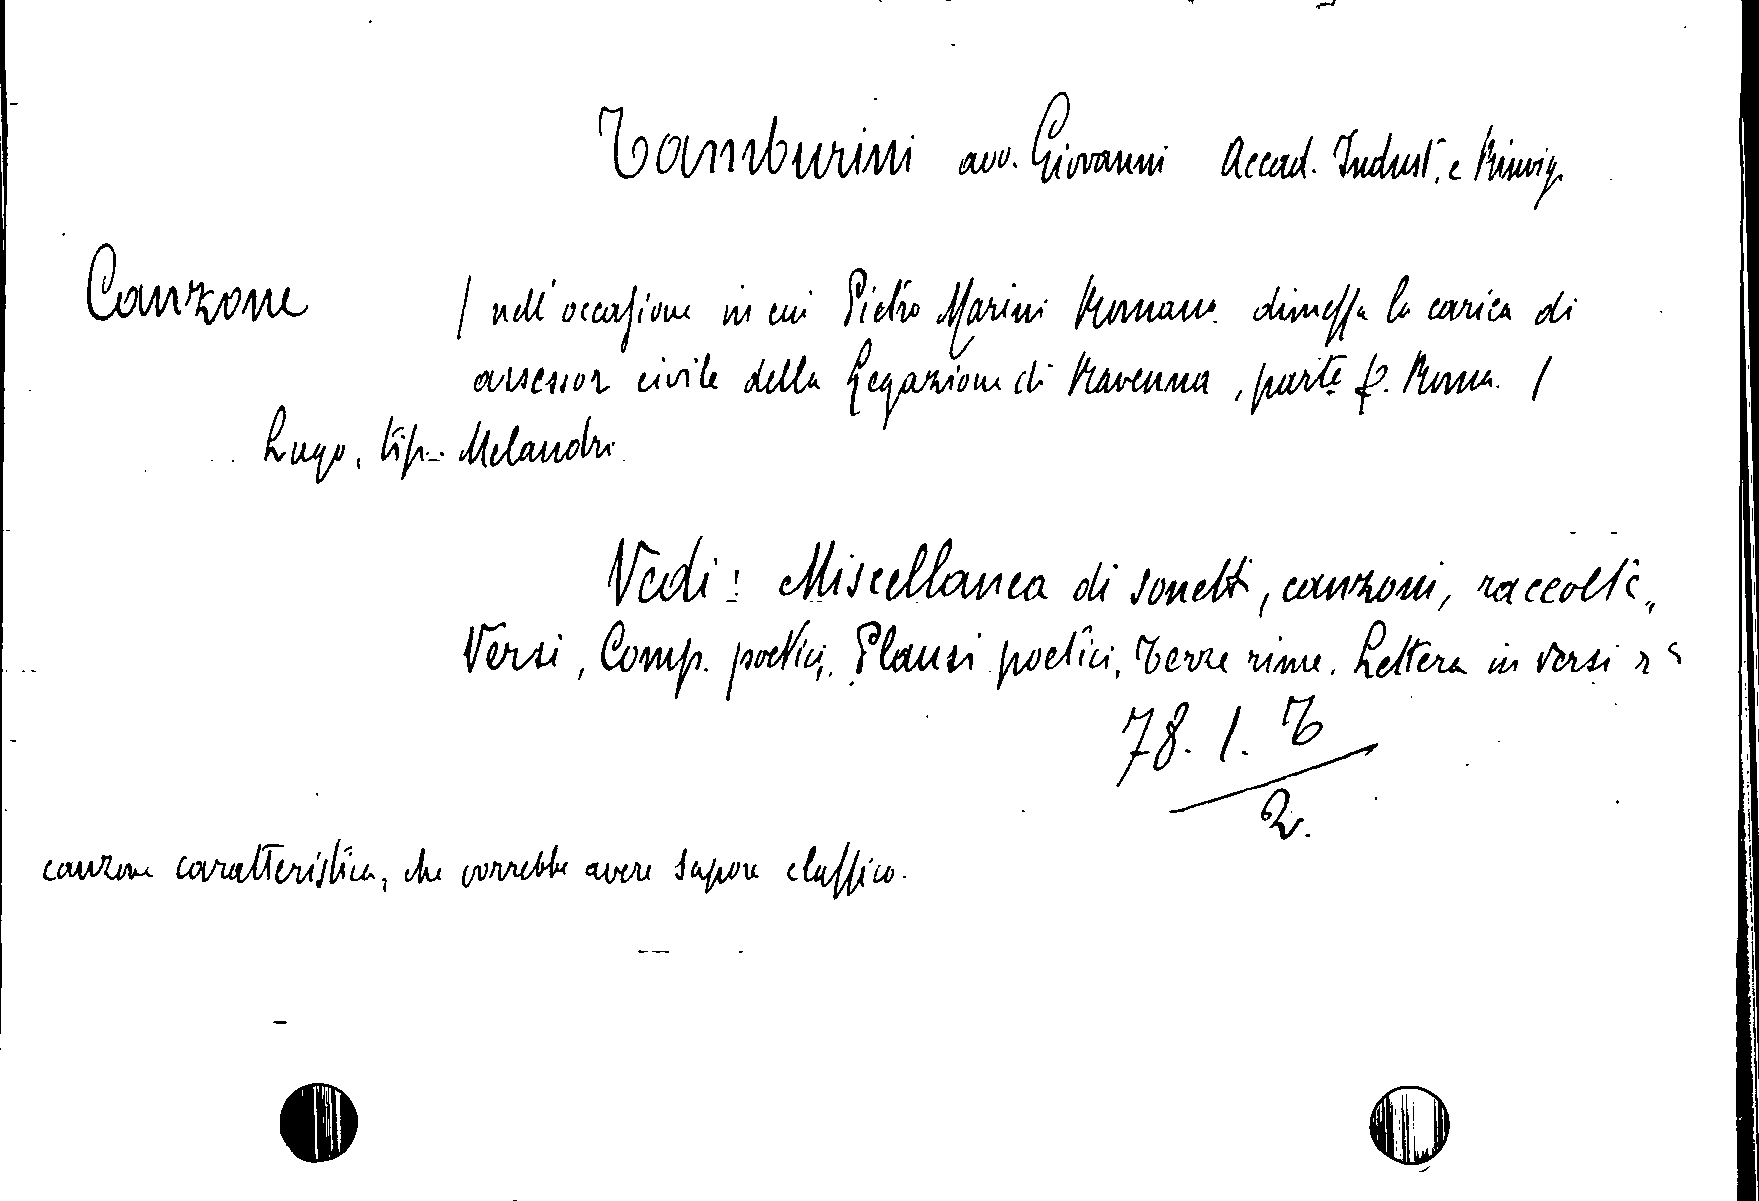 Tamburini avv. Giovanni Accad. Indust. e Rinvig.
Canzone / nell'occasione in cui Pietro Marini Romano dimessa la carica di
assessor civile della Legazione di Ravenna, parte p. Roma. /
Lugo, tip. Melandri
Vedi: Miscellanea di sonetti, canzoni, raccolte,
Versi, Comp. poetici, Plausi poetici, Terze rime. Lettera in versi
78. 1. T
2.
canzone caratteristica, che vorrebbe avere sapore classico.